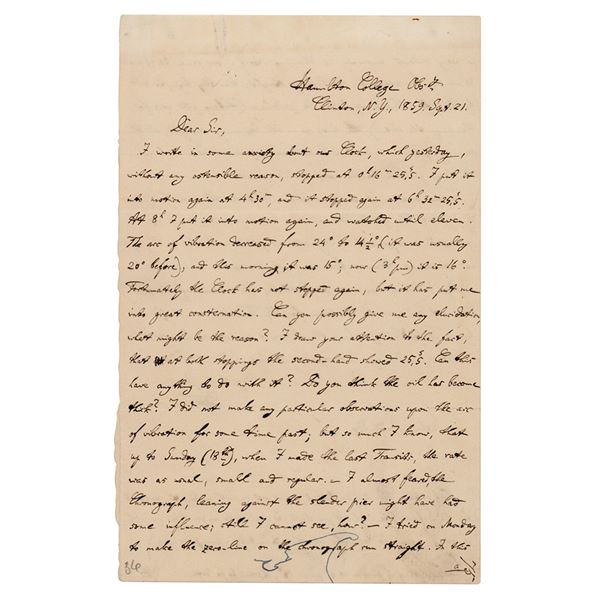 Hamilton College Obs'y.
Clinton, N.Y., 1859 Sept. 21.
Dear Sir,
I write in some anxiety about our Clock, which yesterday,
without any ostensible reason, stopped at 0h 16m 25.s5. I put it
into motion again at 4h 30m, and it stopped again at 6h 32m 25.s5.
At 8h I put it into motion again, and watched until eleven.
The arc of vibration decreased from 24° to 14½° (it was usually
20° before); and this morning it was 15°; now (3h pm) it is 16°.
Fortunately the Clock has not stopped again, but it has put me
into great consternation. Can you possibly give me any elucidation,
what might be the reason? I draw your attention to the fact,
that at both stoppings the second-hand showed 25.s5. Can this
have anything to do with it? Do you think the oil has become
thick? I did not make any particular observations upon the arc
of vibration for some time past; but so much I know, that
up to Sunday (18th), when I made the last Transits, the rate
was as usual, small and regular. — I almost feared, the
Chronograph, leaning against the slender pier might have had
some influence; still I cannot see, how? — I tried on Monday
to make the zero-line on the chronograph run straight. In this